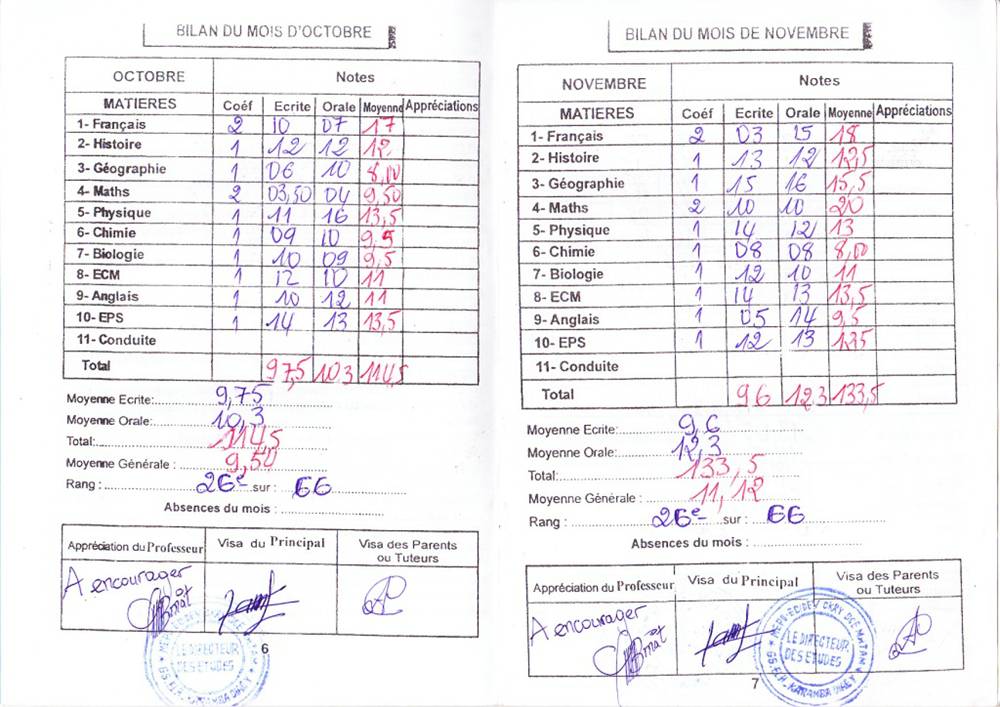 BILAN DU MOIS D'OCTOBRE
OCTOBRE Notes
MATIERES Coéf Ecrite Orale Moyenne Appréciations
1- Français 2 10 07 17
2- Histoire 1 12 12 12
3- Géographie 1 06 10 8,00
4- Maths 2 03,50 04 9,50
5- Physique 1 11 16 13,5
6- Chimie 1 09 10 9,5
7- Biologie 1 10 09 9,5
8- ECM 1 12 10 11
9- Anglais 1 10 12 11
10- EPS 1 14 13 13,5
11- Conduite
Total 97,5 103 114,5
Moyenne Ecrite: 9,75
Moyenne Orale: 10,3
Total: 114,5
Moyenne Générale : 9,54
Rang : 26e sur : 66
Absences du mois :
Appréciation du Professeur Visa du Principal Visa des Parents ou Tuteurs
A encourager
LE DIRECTEUR
DES ETUDES
6
BILAN DU MOIS DE NOVEMBRE
NOVEMBRE Notes
MATIERES Coéf Ecrite Orale Moyenne Appréciations
1- Français 2 03 15 18
2- Histoire 1 13 12 12,5
3- Géographie 1 15 16 15,5
4- Maths 2 10 10 20
5- Physique 1 14 12 13
6- Chimie 1 08 08 8,00
7- Biologie 1 12 10 11
8- ECM 1 14 13 13,5
9- Anglais 1 05 14 9,5
10- EPS 1 12 13 12,5
11- Conduite
Total 96 123 133,5
Moyenne Ecrite: 9,6
Moyenne Orale: 12,3
Total: 133,5
Moyenne Générale : 11,12
Rang : 26e sur : 66
Absences du mois :
Appréciation du Professeur Visa du Principal Visa des Parents ou Tuteurs
A encourager
LE DIRECTEUR
DES ETUDES
7